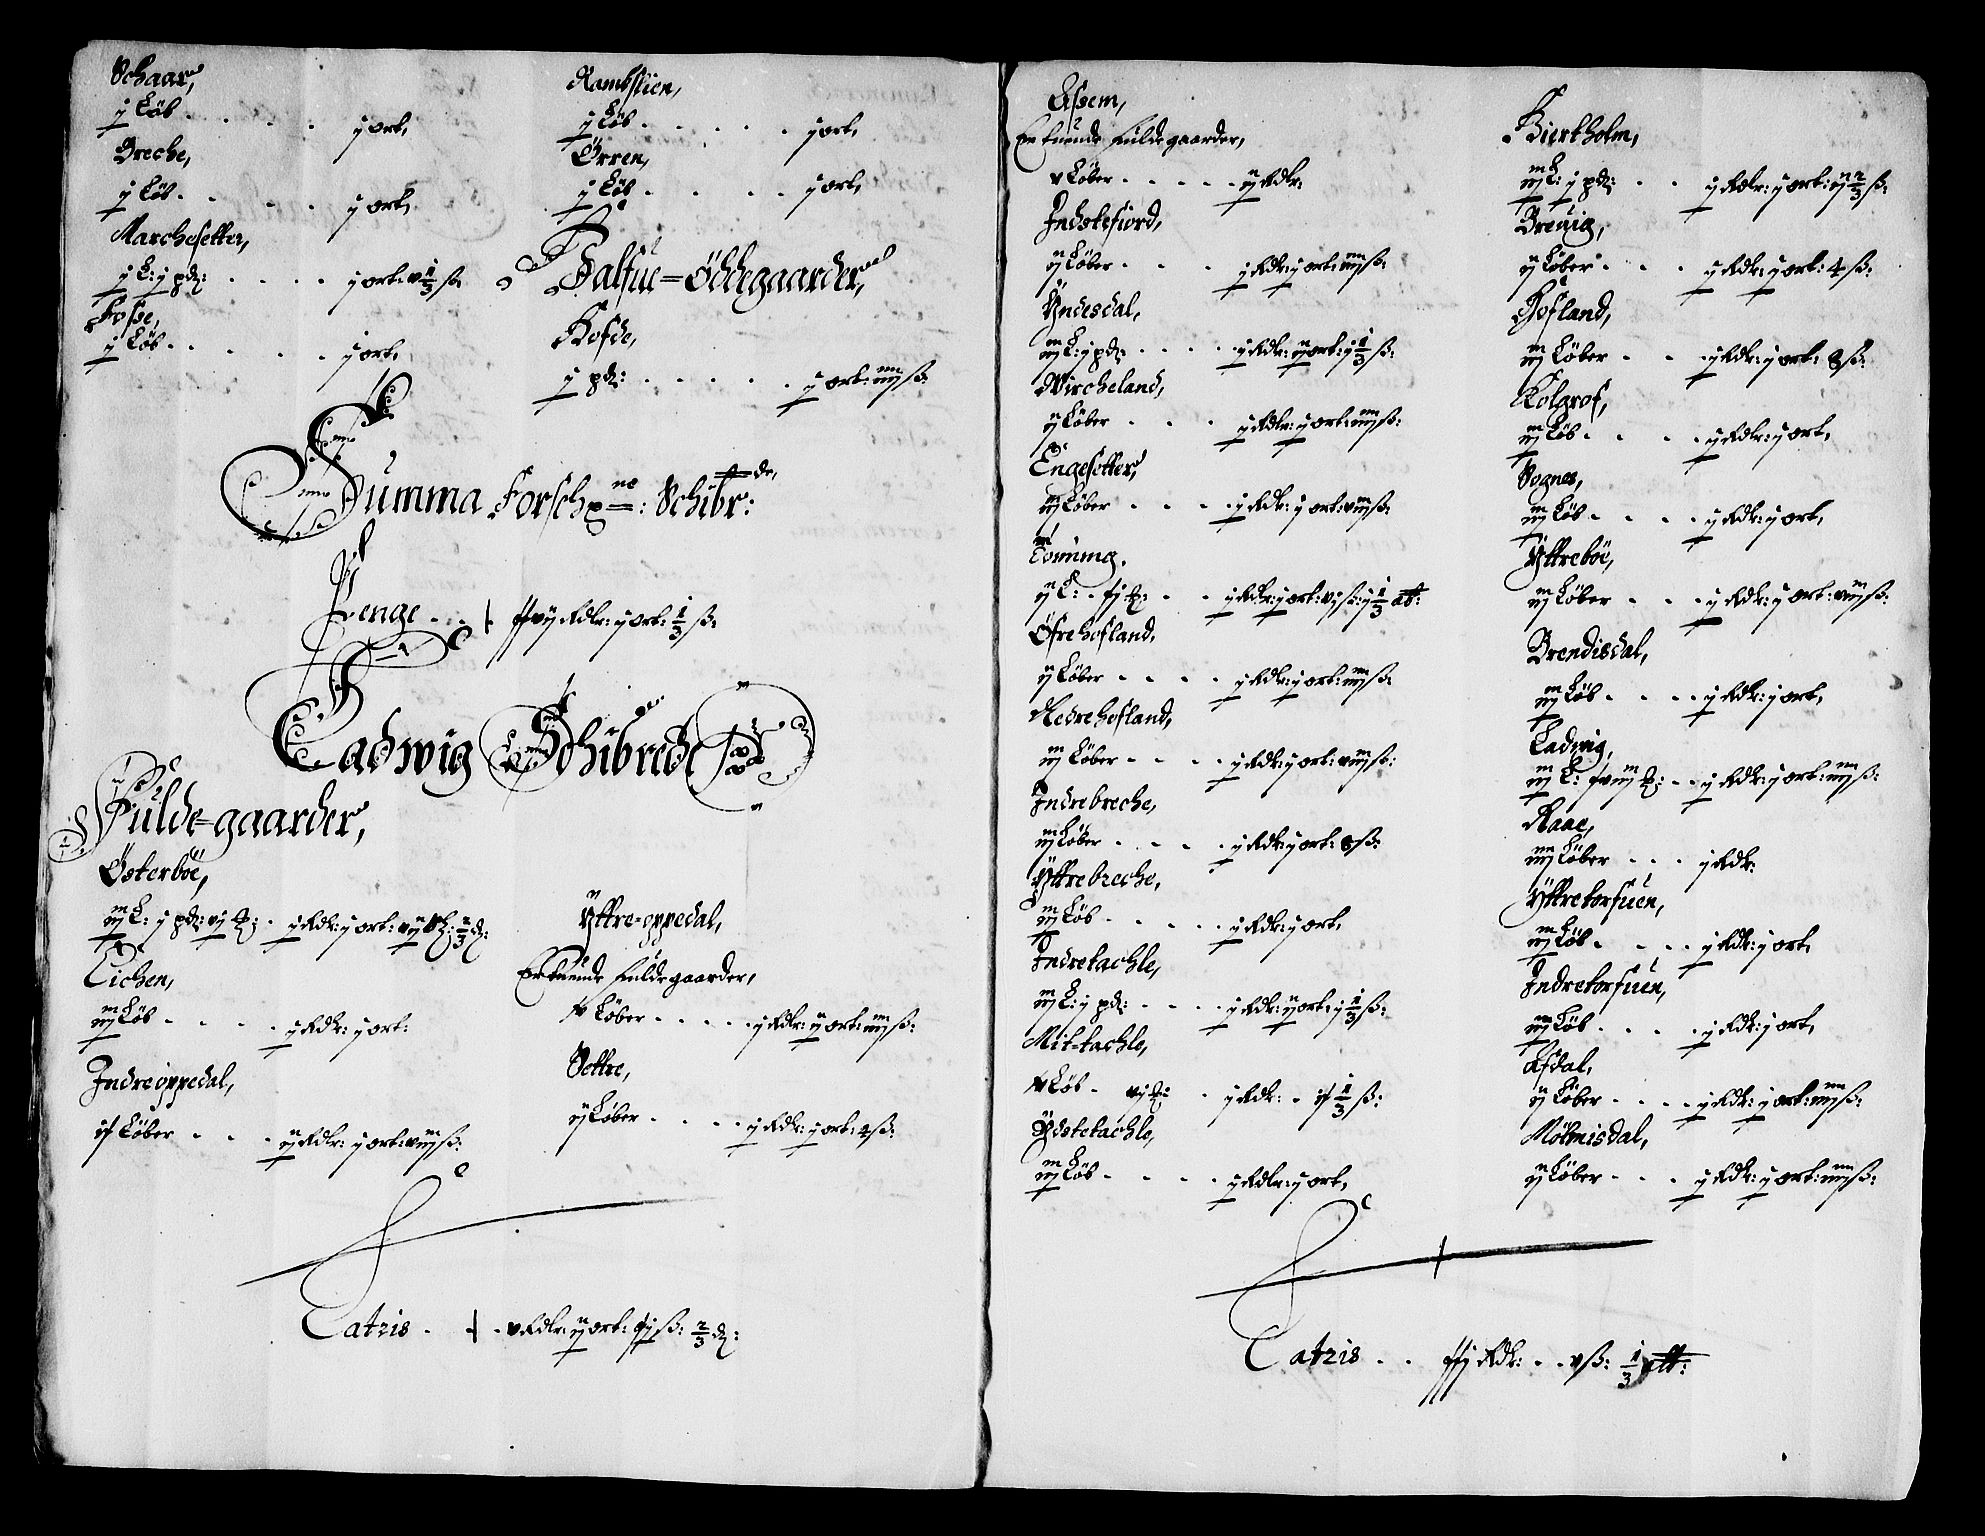 Schaar,
j Løb . . . . j ort,
Breche,
j Løb . . . . j ort,
Marchesetter,
j L: j pd: . . . . j ort: vj 1/3 ß
Fosse,
j Løb . . . . . j ort,
Rambslien,
j Løb . . . . . j ort,
Örren,
j Løb . . . . . j ort,
Halfue=Öddegaarder,
Kofde,
j pd: . . . . . j ort: iiij ß:
Summa Forsch ne: Schibr: de,
Penge . . . Rdlr: j ort: 1/3 ß:
Ladwig Schibrede
Fulde=gaarder,
Österböe,
iij L: j pd: vj . j Rdr: j ort: 2/3
Eichen,
iij Løb . . . . j Rdr: j ort:
Indreöppedal,
Løber . . . . ij Rdlr: j ort: viij ß:
Yttre=oppedal,
Er tuende Fulde gaarder,
Løber . . . . . j Rdlr: ij ort: iiij ß:
Settre,
ij Løber . . . . j Rdr: j ort: 4 ß:
Latris . v Rdlr: ij ort: ß: 2/3
Essem,
Er tuende Fulde gaarder,
v Løber . . . . . ij Rdlr:
Indstefiord,
ij Løber . . . j Rdr: j ort: iiij ß:
Yndesdal,
iij L: j pd: . . . . j Rdlr: ij ort: j 1/3 ß:
Wircheland,
ij Løber . . . j Rdlr: j ort: iiij ß:
Engesetter,
iij Løber . . . . j Rdr: j ort: viij ß:
ij L: . . . j Rdr: j ort: vj ß: j 1/3 alb:
Öfrehofland,
ij Løber . . . . j Rdr: j ort: iiij ß:
Nedrehofland,
iij Løber . . . . j Rdr: j ort: viij ß:
Indrebreche,
iij Løber . . . . j Rdr: j ort: 8 ß:
Yttrebreche,
iij Løb . . . . . j Rdr: j ort,
Indretachle,
iij L: j pd: . . . . j Rdr: ij ort: j 1/3 ß:
Mit=tachle,
Løb . vj . j Rdr: . 1/3 ß:
Ydstetachle,
iij Løb . . . . j Rdlr: j ort,
Bierkholm,
iij L: j pd: . . j Rdlr: j ort: ij 2/3 ß:
Breuig,
ij Løber . . . j Rdr: j ort: 4 ß:
Hofland,
iij Løber . . . j Rdr: j ort: 8 ß:
Kolgrof,
iij Løb . . . . j Rdlr: j ort,
Sognes,
iij Løb . . . . j Rdlr: j ort,
Yttreböe,
iij Løber . . . j Rdr: j ort: viij ß:
Brendisdal,
iij Løb . . . . j Rdr: j ort,
Ladwig,
iij L: . . j Rdr: j ort: iiij ß:
Raae,
iiij Løber . . . j Rdr:
Yttretorsuen,
iij Løb . . . . j Rdr: j ort,
Indretorsuen,
iij Løb . . . . j Rdr: j ort,
Afdal,
ij Løber . . . . j Rdr: j ort: iiij ß:
Mölmisdal,
ij Løber . . . j Rdr: j ort: iiij ß:
Latris . . Rdr: . . v ß: 1/3 alb: